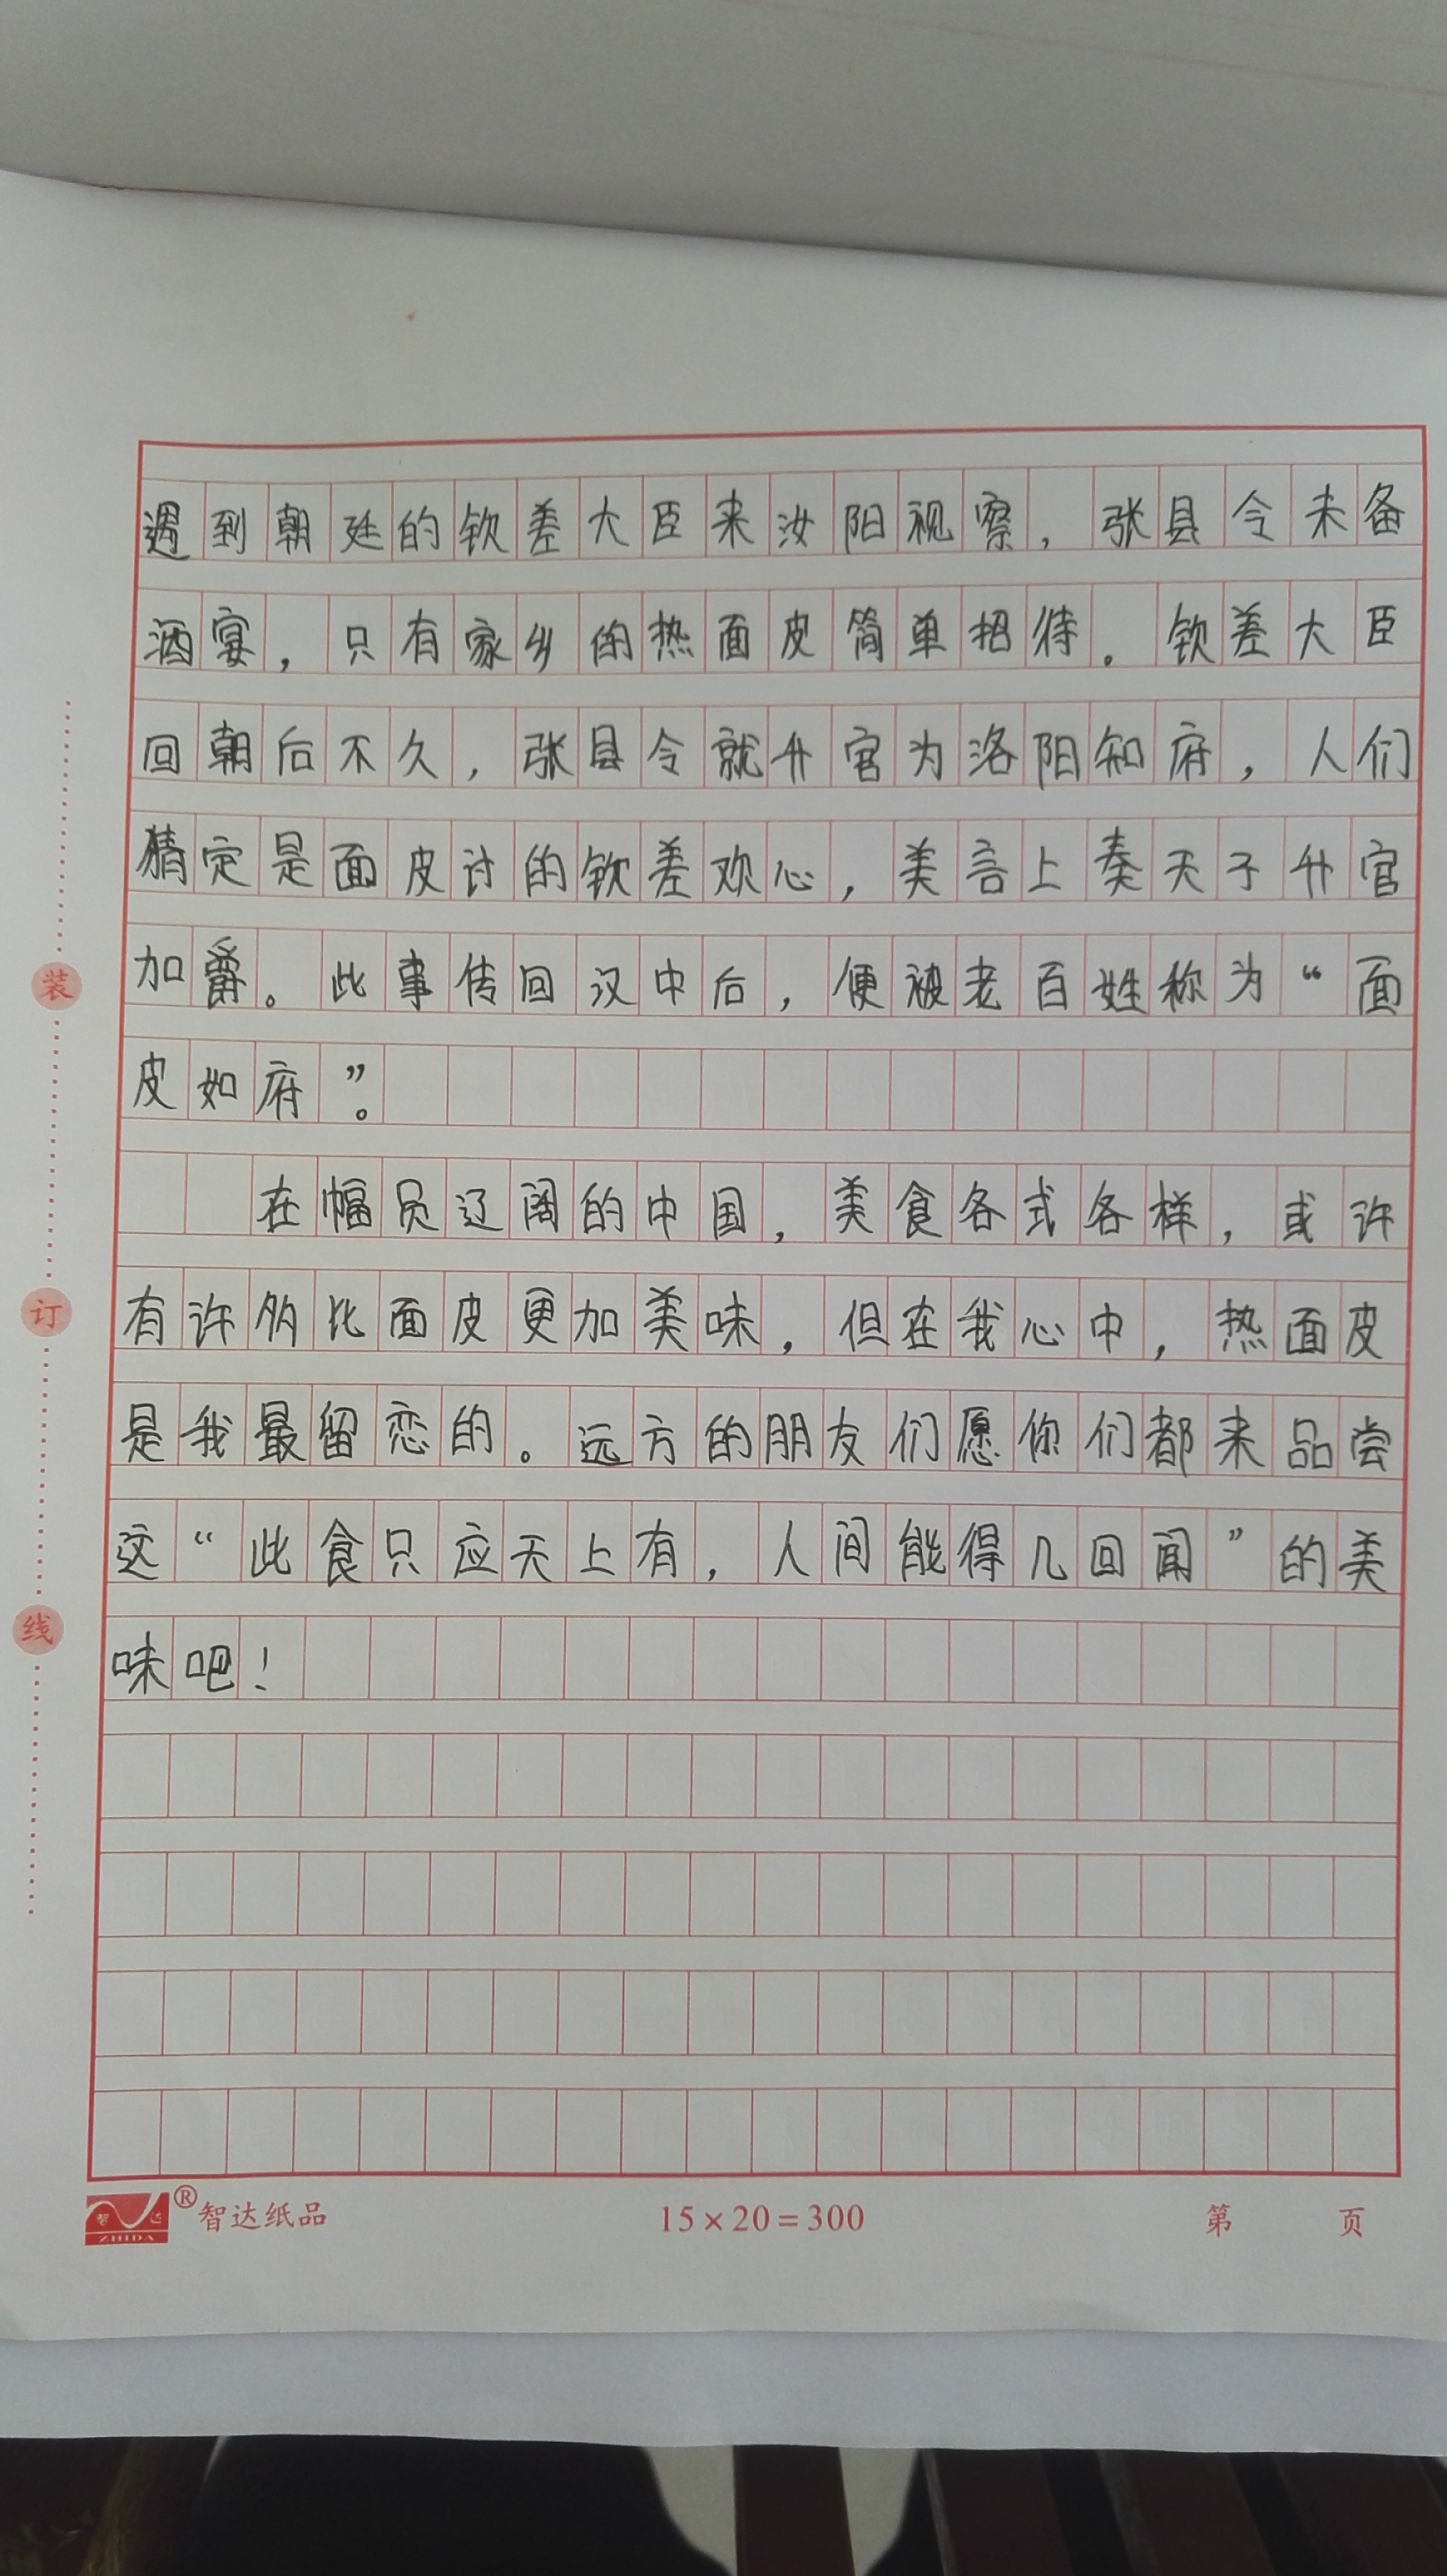 遇到朝廷的钦差大臣来汝阳视察，张县令未备
酒宴，只有家乡的热面皮简单招待。钦差大臣
回朝后不久，张县令就升官为洛阳知府，人们
猜定是面皮讨的钦差欢心，美言上奏天子升官
加爵。此事传回汉中后，便被老百姓称为“面
皮如府”。
在幅员辽阔的中国，美食各式各样，或许
有许多比面皮更加美味，但在我心中，热面皮
是我最留恋的。远方的朋友们愿你们都来品尝
这“此食只应天上有，人间能得几回闻”的美
味吧！
装
订
线
智达
ZHIDA
®智达纸品
15×20=300
第 页